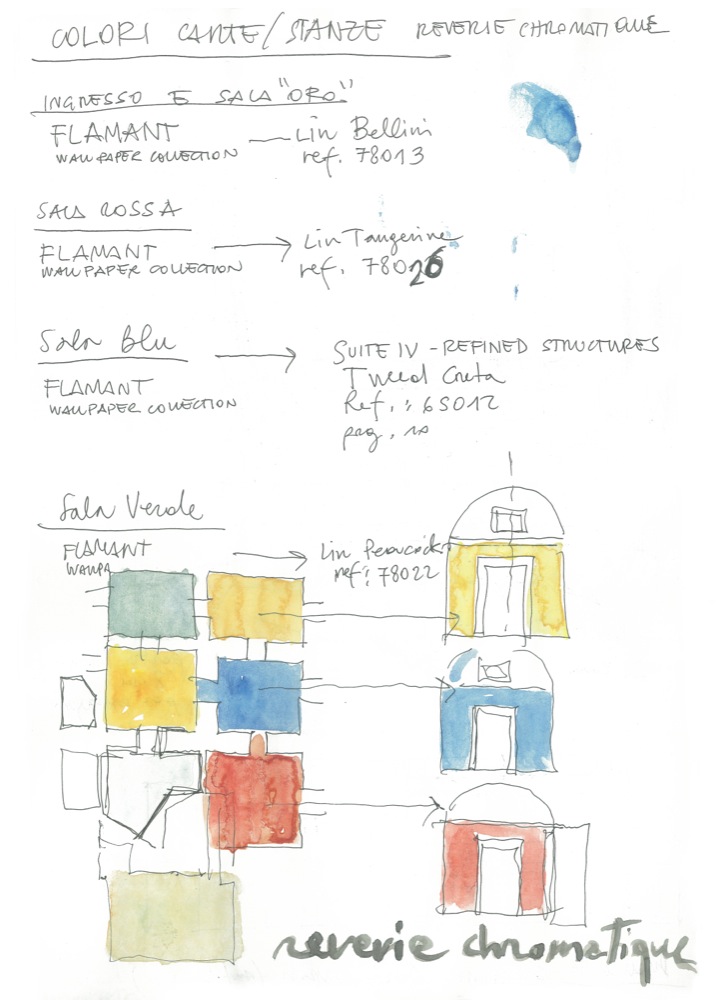 COLORI CARTE/STANZE REVERIE CHROMATIQUE
INGRESSO E SALA "ORO"
FLAMANT — Lin Bellini
WALLPAPER COLLECTION ref. 78013
SALA ROSSA
FLAMANT → Lin Tangerine
WALLPAPER COLLECTION ref. 78026
Sala Blu
FLAMANT → SUITE IV - REFINED STRUCTURES
WALLPAPER COLLECTION Tweed Creta
Ref.: 65012
pag. 10
Sala Verde
FLAMANT → Lin Peacock
WALLPA ref: 78022
reverie chromatique